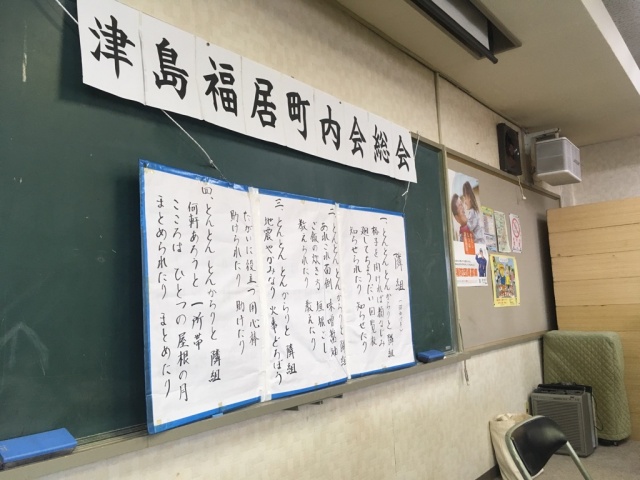 津島福居町内会総会
隣組
一、とんとん とんからりと 隣組
格子を開ければ 顔なじみ
廻してちょうだい 回覧板
知らせられたり 知らせたり
二、とんとん とんからりと 隣組
あれこれ面倒 味噌醤油
ご飯の炊き方 垣根ごし
教えられたり 教えたり
三、とんとん とんからりと 隣組
地震やかみなり 火事どろぼう
たがいに役立つ 用心棒
助けられたり 助けたり
四、とんとん とんからりと 隣組
何軒あろうと 一所帯
こころは ひとつの屋根の月
まとめられたり まとめたり